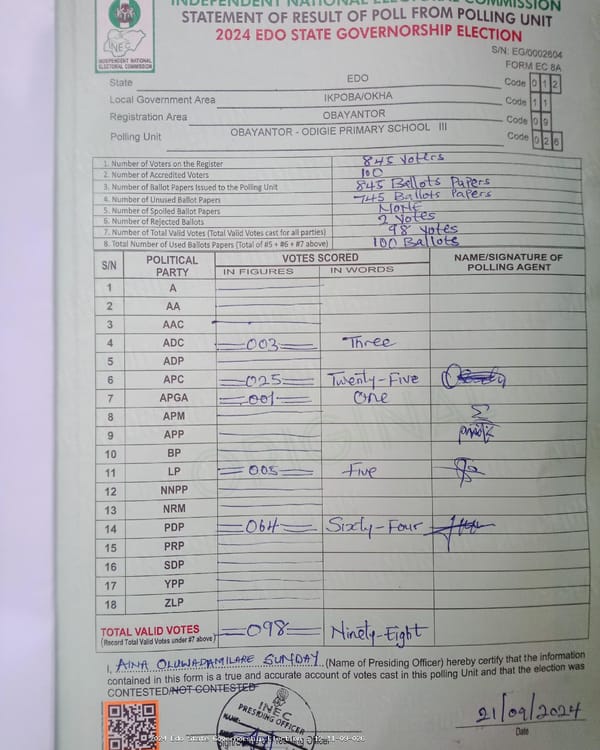 INDEPENDENT NATIONAL ELECTORAL COMMISSION
STATEMENT OF RESULT OF POLL FROM POLLING UNIT
2024 EDO STATE GOVERNORSHIP ELECTION
INEC
INDEPENDENT NATIONAL
ELECTORAL COMMISSION
S/N: EG/0002604
FORM EC 8A
State EDO Code 0 1 2
Local Government Area IKPOBA/OKHA Code 1 1
Registration Area OBAYANTOR Code 0 9
Polling Unit OBAYANTOR - ODIGIE PRIMARY SCHOOL III Code 0 2 6
1. Number of Voters on the Register 845 Voters
2. Number of Accredited Voters 100
3. Number of Ballot Papers Issued to the Polling Unit 845 Ballots Papers
4. Number of Unused Ballot Papers 745 Ballots Papers
5. Number of Spoiled Ballot Papers NONE
6. Number of Rejected Ballots 2 Votes
7. Number of Total Valid Votes (Total Valid Votes cast for all parties) 98 Votes
8. Total Number of Used Ballots Papers (Total of #5 + #6 + #7 above) 100 Ballots
S/N POLITICAL PARTY VOTES SCORED NAME/SIGNATURE OF POLLING AGENT
IN FIGURES IN WORDS
1 A
2 AA
3 AAC
4 ADC 003 Three
5 ADP
6 APC 025 Twenty-Five
7 APGA 001 One
8 APM
9 APP
10 BP
11 LP 005 Five
12 NNPP
13 NRM
14 PDP 064 Sixty-Four
15 PRP
16 SDP
17 YPP
18 ZLP
TOTAL VALID VOTES 098 Ninety-Eight
(Record Total Valid Votes under #7 above)
I, AINA OLUWADAMILARE SUNDAY (Name of Presiding Officer) hereby certify that the information
contained in this form is a true and accurate account of votes cast in this polling Unit and that the election was
CONTESTED/NOT CONTESTED
INEC
PRESIDING OFFICER
NAME:
21/09/2024
Date
2024 Edo State Governorship Election - 12-11-09-026